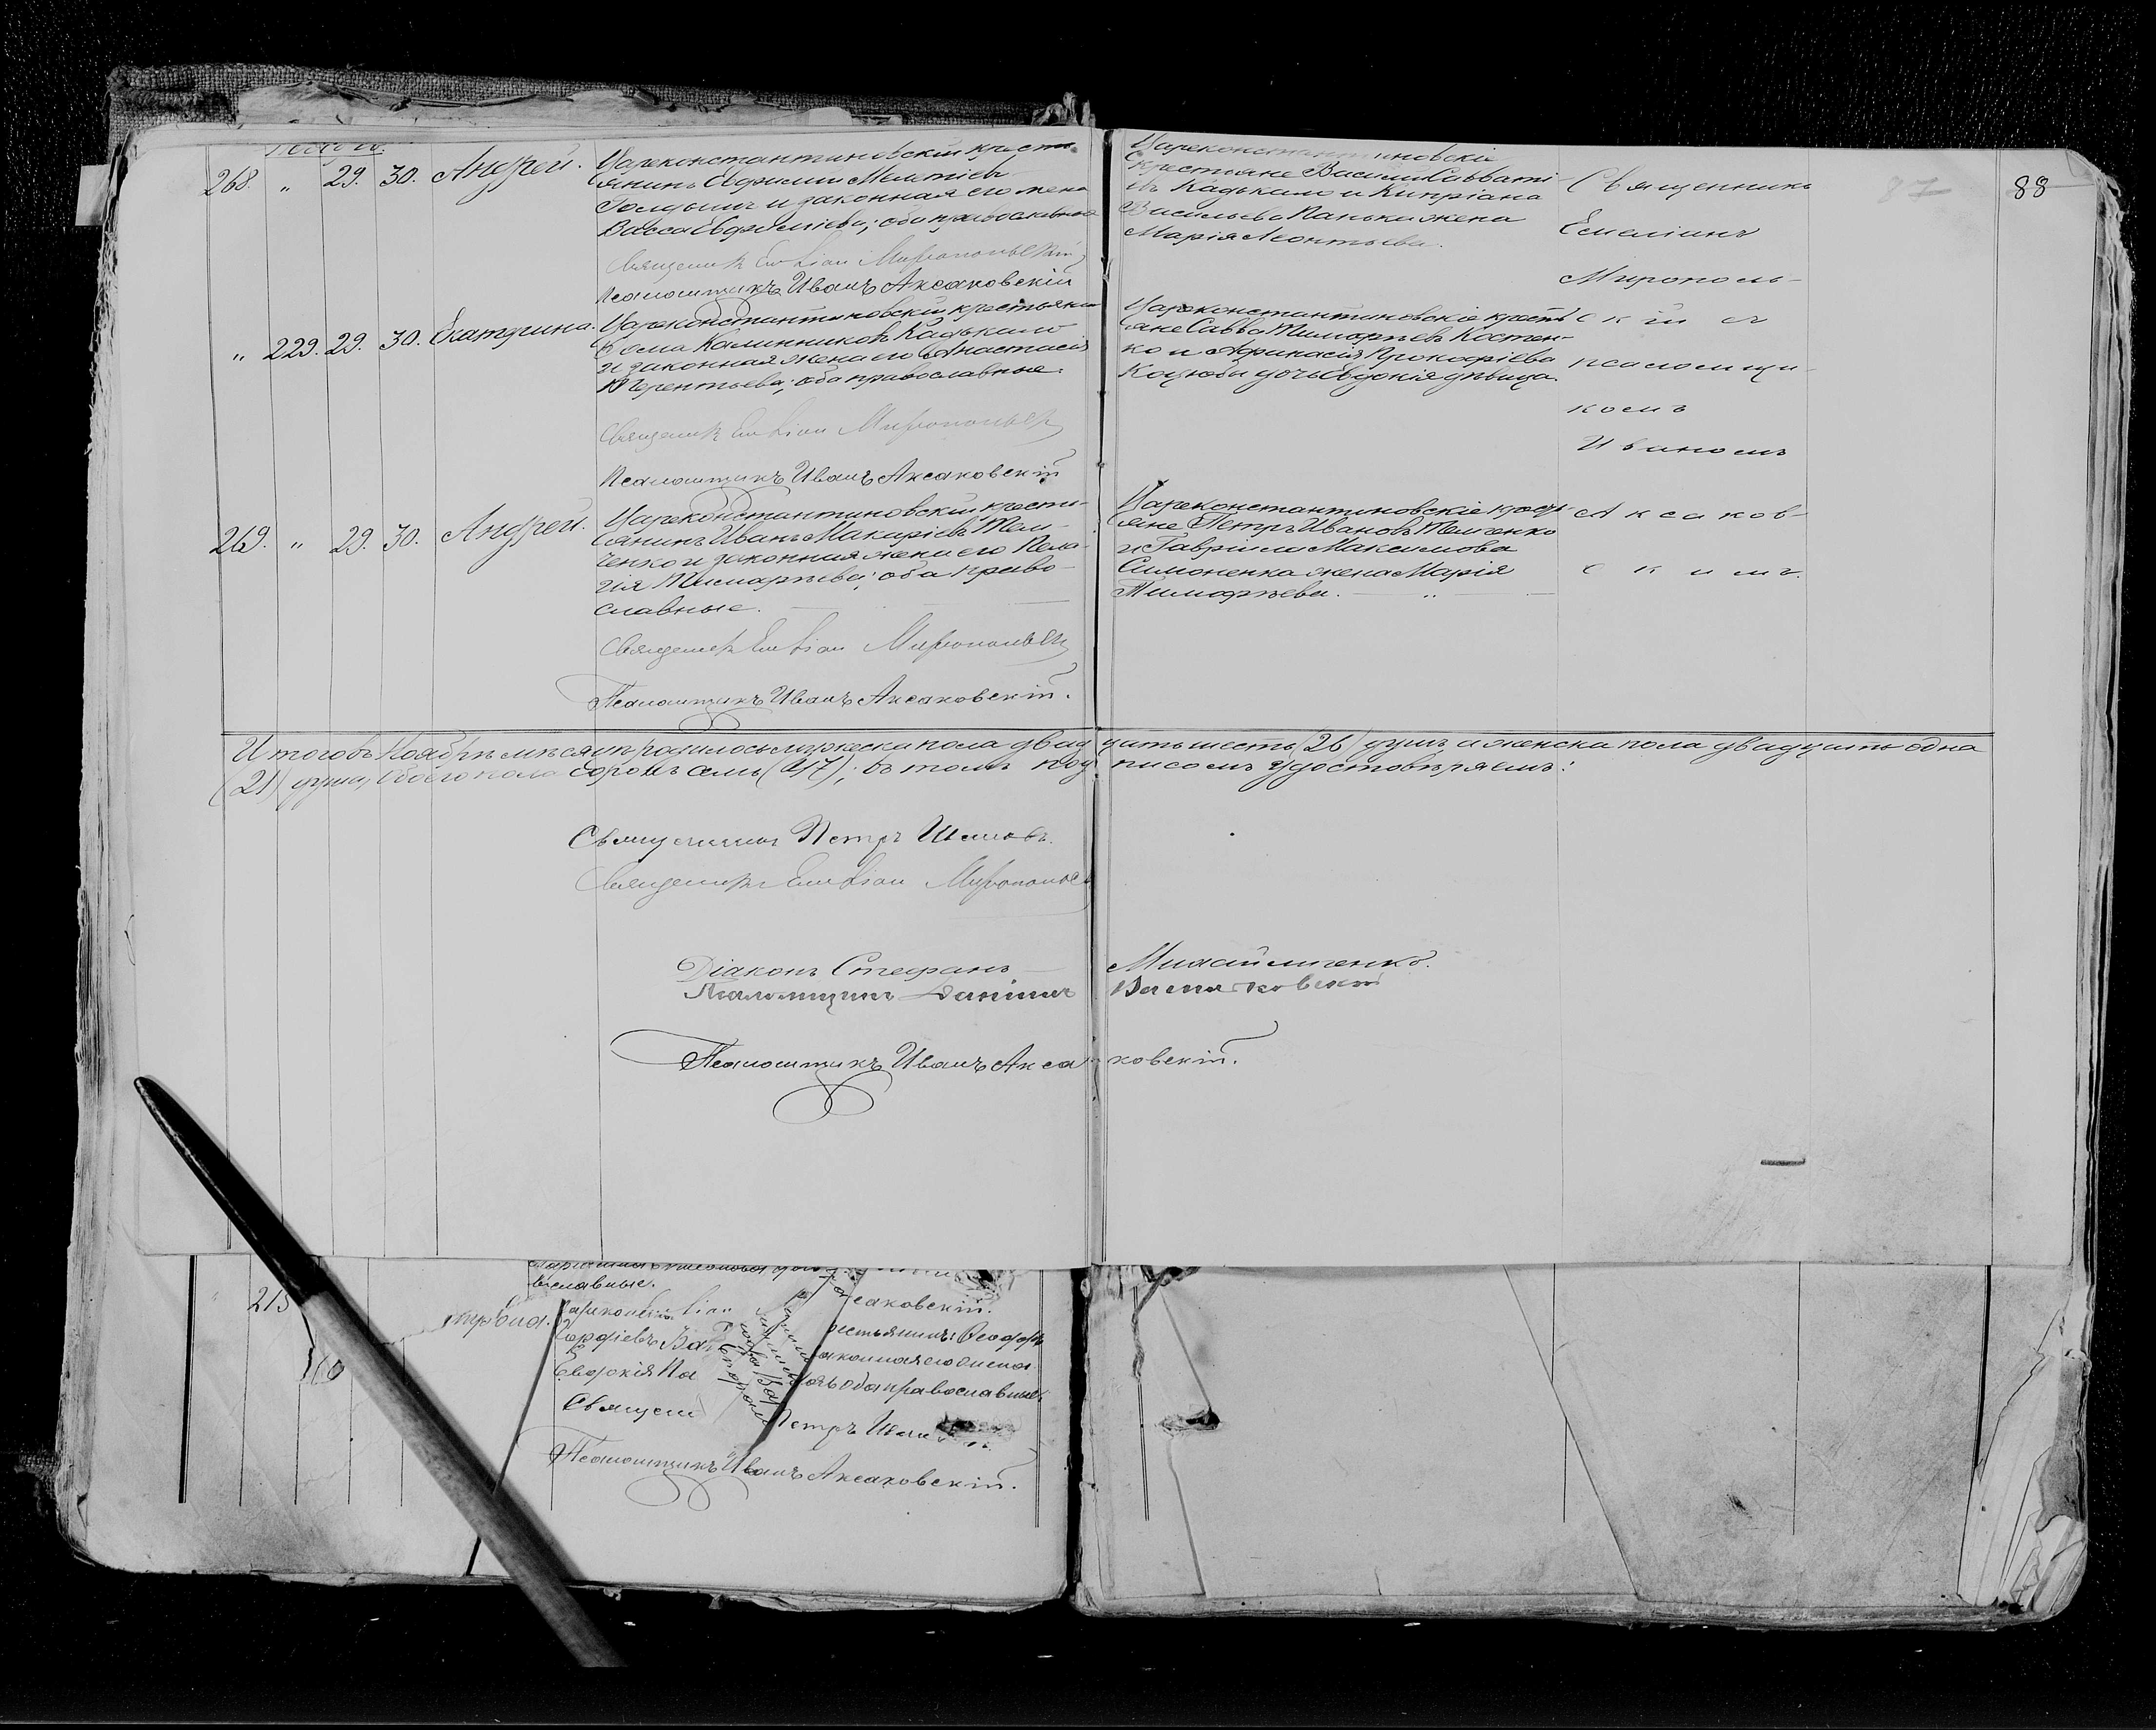 268. " 29. 30. Андрей. Цареконстантиновскій крестьянинъ Евфимій Мелетіевъ
и законная его жена
Васса Евфиміева; оба православные
Священникъ Емеліан Миропольскій
Псаломщикъ Иванъ Аксаковскій
Цареконстантиновскіе
крестьяне Василій Савваті-
евъ Кадькало и Кипріана
Васильева Панька жена
Марія Леонтьева.
" 229. 29. 30. Екатерина. Цареконстантиновскій крестьянин
Ѳома Калинниковъ Кадькало
и законная жена его Анастасія
Терентьева; оба православные.
Священник Емеліан Миропольск
Псаломщикъ Иванъ Аксаковскій
Цареконстантиновскіе кресть
яне Савва Тимофѣевъ Костен-
ко и Афанасія Прокофіева
Коцюбы дочь Евдокія дѣвица.
269. " 29. 30. Андрей. Цареконстантиновскій крести-
янинъ Иванъ Макаріевъ Тем-
ченко и законная жена его Пела-
гія Тимофѣева; оба право-
славные.
Священник Емеліан Миропольск
Псаломщикъ Иванъ Аксаковскій.
Цареконстантиновскіе кресть
яне Петръ Ивановъ Темченко
и Гавріила Максимова
Симоненка жена Марія
Тимофѣева. "
Священникъ
Емеліанъ
Мирополь-
скій съ
псаломщи-
комъ
Иваномъ
Аксаков-
скимъ.
87
88
Итого въ Ноябрѣ мѣсяцѣ родилось мужеска пола двадцать шесть (26) душъ, а женска пола двадцать одна
(21) душа, обоего пола сорокъ семь (47); въ томъ подписомъ удостовѣряемъ:
Священникъ Петръ
Священникъ Емеліан Миропольск
Діаконъ Стефанъ Михайличенко.
Псаломщикъ Даніилъ
Псаломщикъ Иванъ Аксаковскій.
вославные.
саковскій.
215
Гордіевъ
Евдокія Па
законная его жена
оба православные
Священ
Петръ
Псаломщикъ Иванъ Аксаковскій.